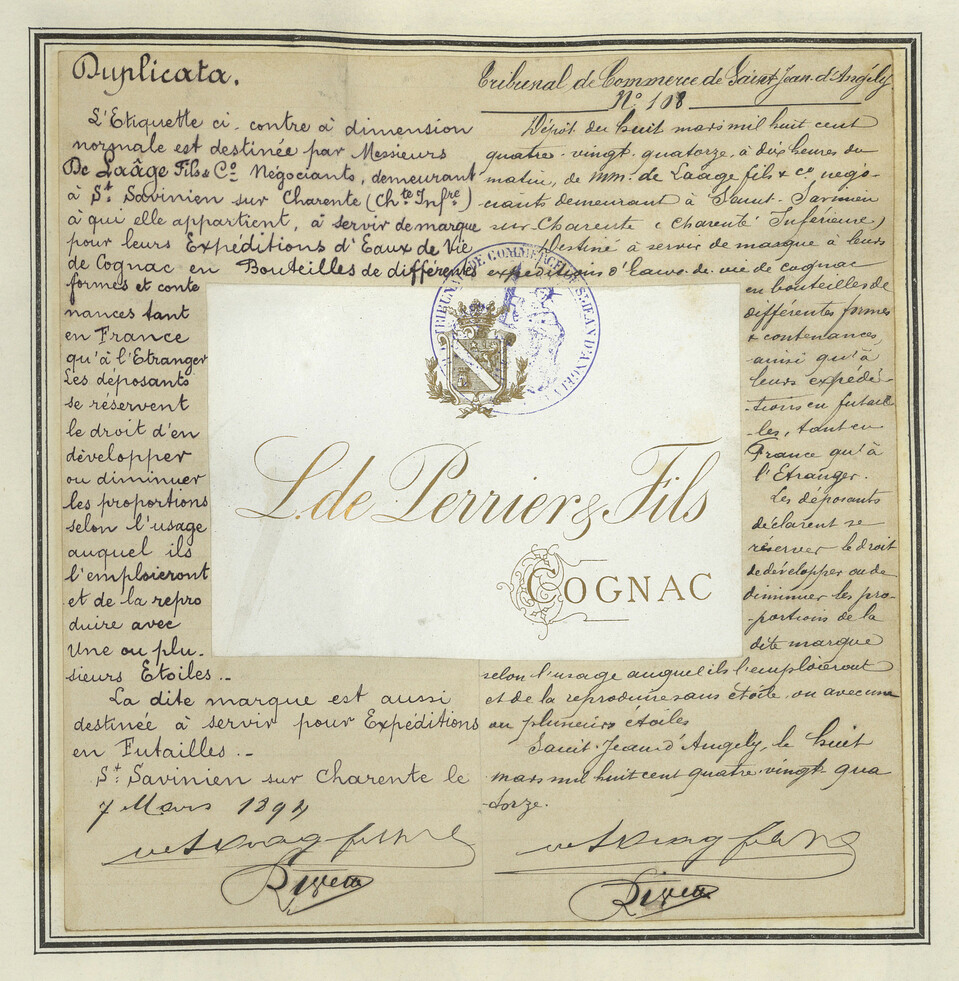 Duplicata.
L'Etiquette ci-contre à dimension
normale est destinée par Messieurs
De Laâge Fils & Co Négociants, demeurant
à St Savinien sur Charente (Chte Infre)
à qui elle appartient, à servir de marque
pour leurs Expéditions d'Eaux de Vie
de Cognac en Bouteilles de différentes
formes et conte
nances tant
en France
qu'à l'Etranger
Les déposants
se réservent
le droit d'en
développer
ou diminuer
les proportions
selon l'usage
auquel ils
l'emploieront
et de la repro
duire avec
Une ou plu-
sieurs Etoiles.-
La dite marque est aussi
destinée à servir pour Expéditions
en Futailles.-
St Savinien sur Charente le
7 Mars 1894
Tribunal de Commerce de Saint Jean d'Angély
N° 108
Dépôt du huit mars mil huit cent
quatre-vingt-quatorze, à dix heures du
matin, de MM. de Laâge fils & Co, négo-
ciants demeurant à Saint-Savinien
sur Charente (Charente Inférieure)
Destiné à servir de marque à leurs
expéditions d'Eaux-de-vie de cognac
en bouteilles de
différentes formes
& contenances,
ainsi qu'à
leurs expédi-
-tions en futail-
-les, tant en
France qu'à
l'Etranger.
Les déposants
déclarent se
réserver le droit
de développer ou de
diminuer les pro-
-portions de la
dite marque
selon l'usage auquel ils l'emploieront
et de la reproduire sans étoile, ou avec une
ou plusieurs étoiles
Saint-Jean-d'Angély, le huit
mars mil huit cent quatre-vingt-qua
-torze.
TRIBUNAL DE COMMERCE DE ST JEAN D'ANGELY
L. de Perrier & Fils
COGNAC